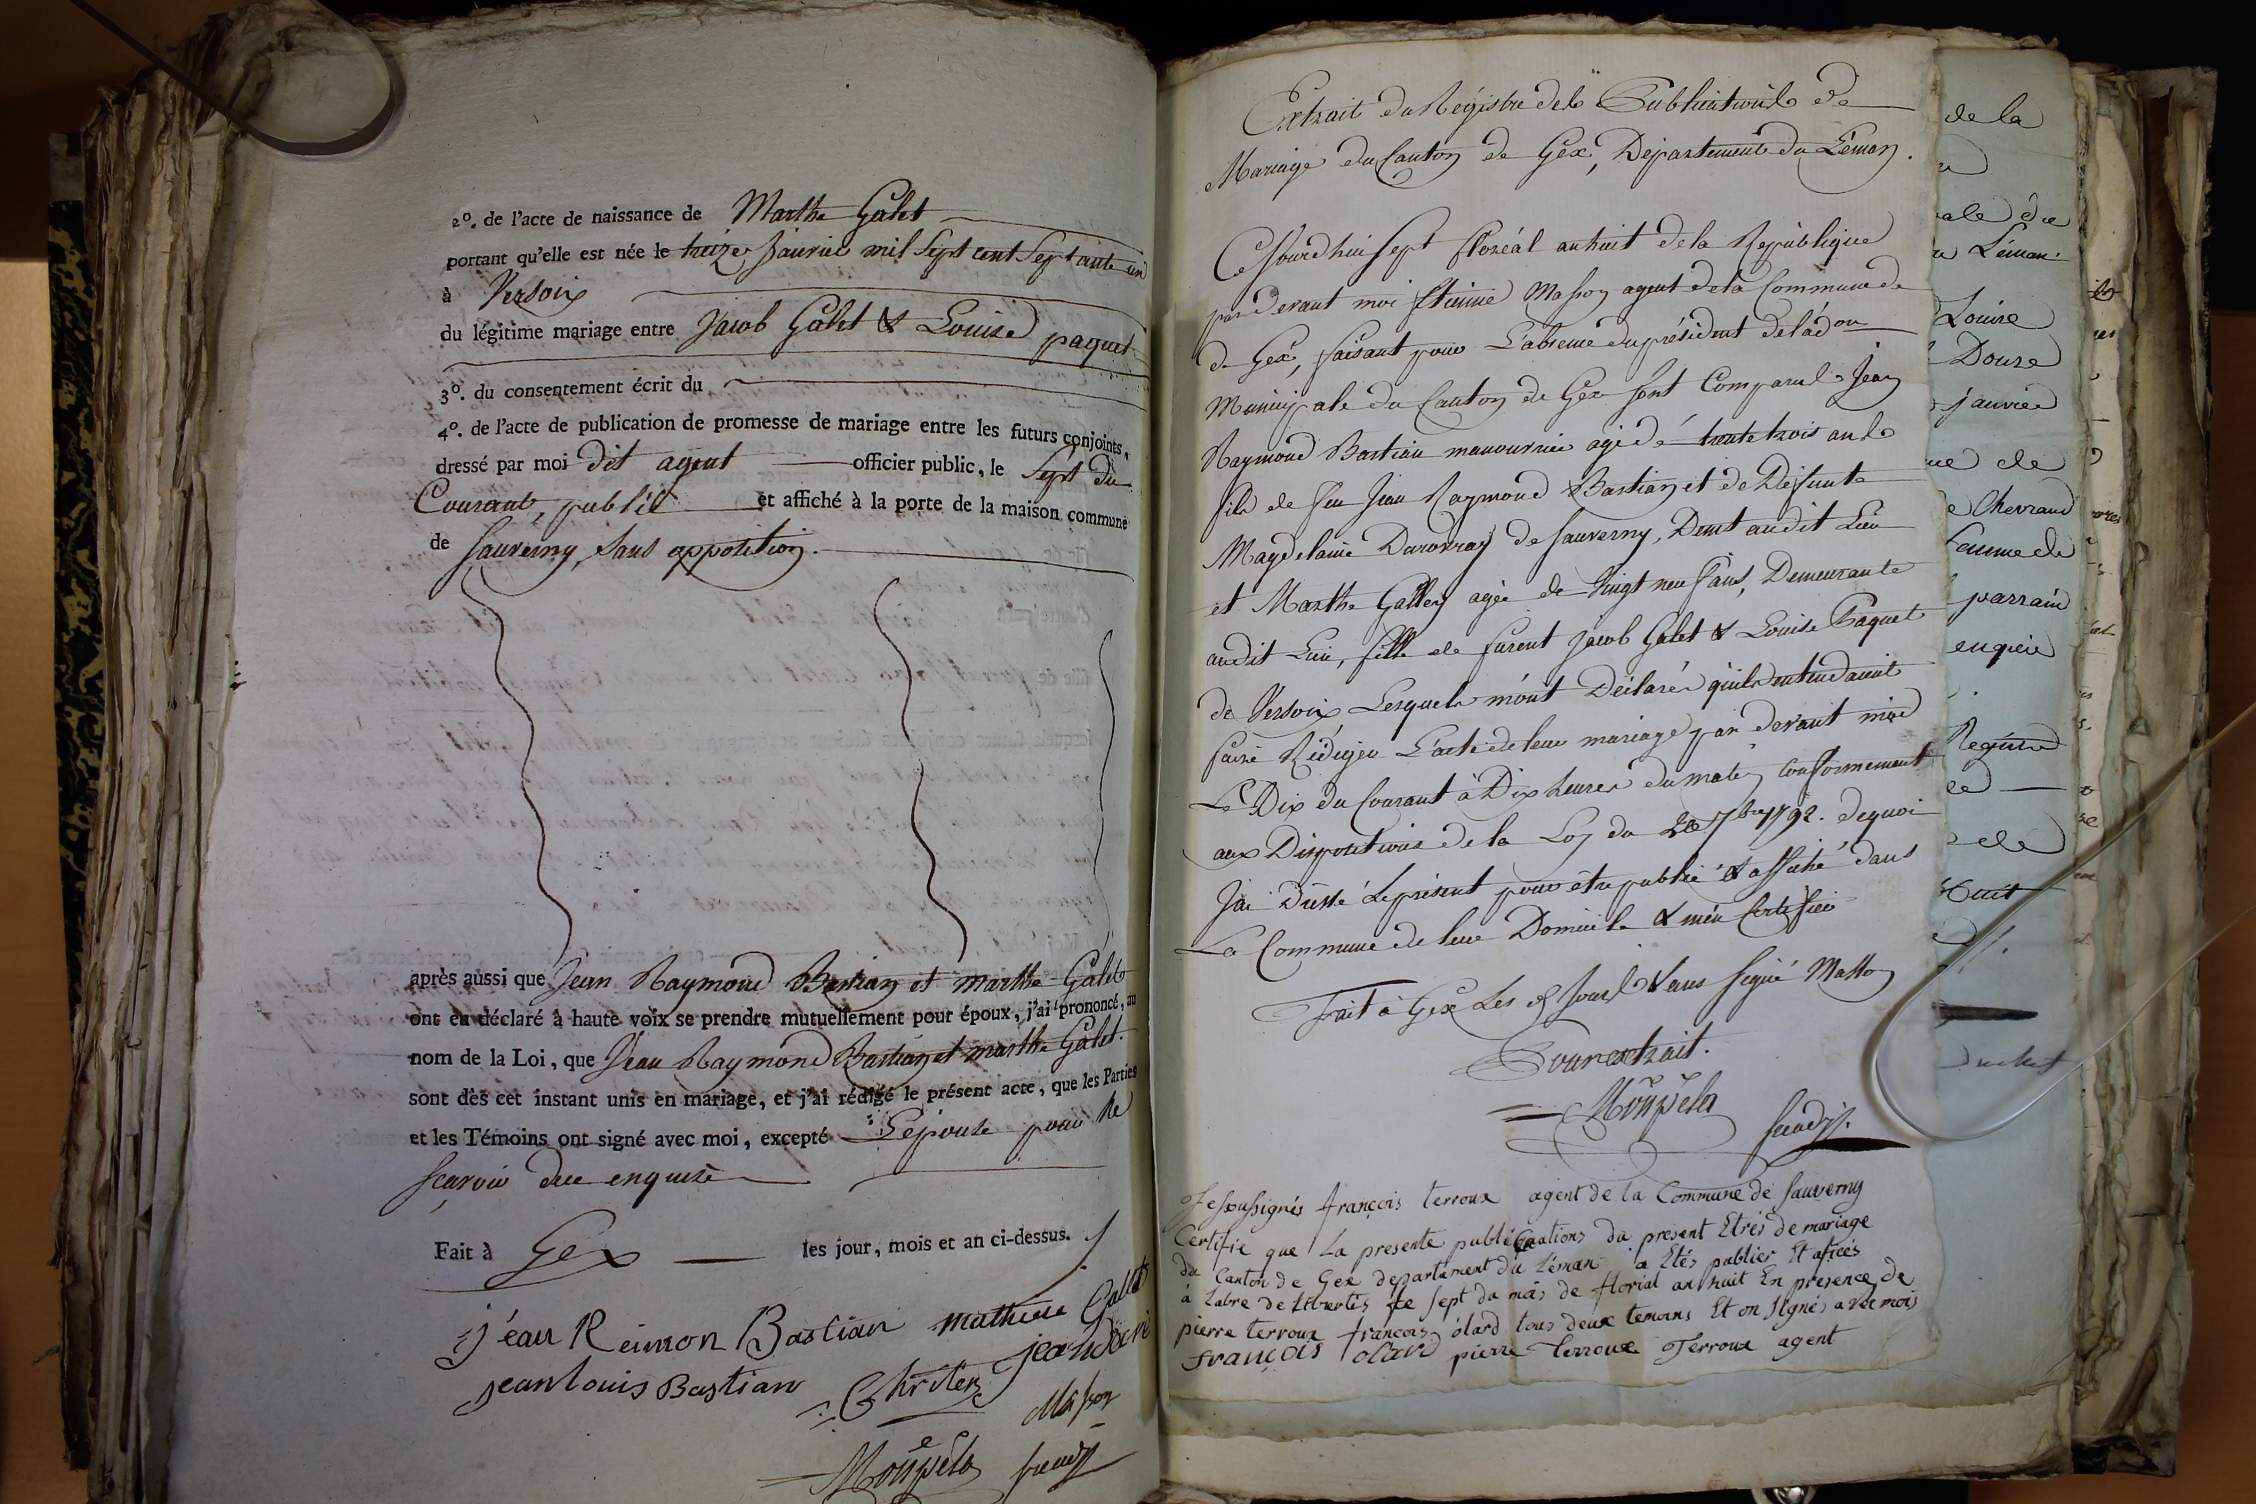 2º. de l'acte de naissance de Marthe Galet
portant qu'elle est née le treize Janvier mil Sept cent Septante un
à Versoix
du légitime mariage entre Jacob Galet & Louise paquet
3º. du consentement écrit du
4º. de l'acte de publication de promesse de mariage entre les futurs conjoints,
dressé par moi dit agent officier public, le Sept du
Courant, publié et affiché à la porte de la maison commune
de Sauverny, Sans opposition.
après aussi que Jean Raymond Bastian et marthe Galet
ont eu déclaré à haute voix se prendre mutuellement pour époux, j'ai prononcé, au
nom de la Loi, que Jean Raymond Bastian et marthe Galet.
sont dès cet instant unis en mariage, et j'ai rédigé le présent acte, que les Parties
et les Témoins ont signé avec moi, excepté L'épouse pour ne
sçavoir due enquise
Fait à Gex les jour, mois et an ci-dessus.
jéan Reimon Bastian mathieu Gallet
jean louis Bastian
Masson
Extrait du Régistre des Publications de
Mariage du Canton de Gex, Département du Léman.
Ce Jourdhui Sept floréal an huit de la République
par devant moi Etienne Masson agent de la Commune de
de Gex, faisant pour L'absence du président de l'ad.on
Municipale du Canton de Gex Sont Comparus Jean
Raymond Bastian manouvrier agé de trente trois ans
fils de feu Jean Raymond Bastian et de Défunte
Magdelaine de Sauverny, Demt audit Lieu
et Marthe Galley agée de Vingt neuf ans, Demeurante
audit Lieu, fille de furent Jacob Galet & Louise Paquet
de Versoix Lesquels m'ont Déclarés qu'ils entendaient
faire Rédiger L'acte de leur mariage par devant moi
Le Dix du Courant à Dix heures du matin Conformement
aux Dispositions de la Loy du 20 7bre 1792. dequoi
J'ai Dressé Le présent pour être publié & affiché dans
La Commune de leur Domicile & m'en Certifier
Fait à Gex Les ds Jour & ans Signé Masson
Pour extrait.
Je soussignés françois terroux agent de la Commune de Sauverny
Certifie que La presente publications du present Etrés de mariage
du Canton de Gex departement du Léman a Etés publier Et aficés
a Labre de Libertés le sept du mois de florial an huit En presence de
pierre terroux francois olard tous deux temoins Et on signés avec mois
François olard pierre terroux Terroux agent
de la
Léman.
Louise
Douze
janvier
de
Chevrand
femme de
parrain
Registre
de